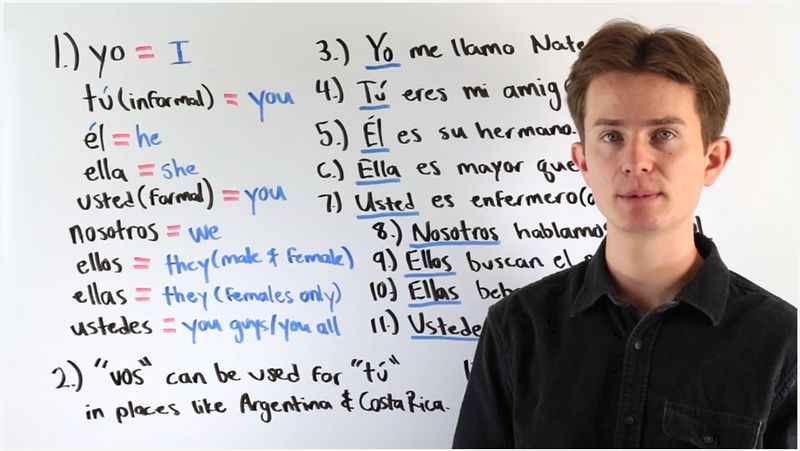 1.) yo = I
tú (informal) = you
él = he
ella = she
usted (formal) = you
nosotros = we
ellos = they (male & female)
ellas = they (females only)
ustedes = you guys/you all
2.) "vos" can be used for "tú"
in places like Argentina & Costa Rica.
3.) Yo me llamo Nate
4.) Tú eres mi
5.) Él es su hermano.
6.) Ella es mayor que
7.) Usted es
8.) Nosotros hablamos
9.) Ellos buscan el
10.) Ellas
11.)